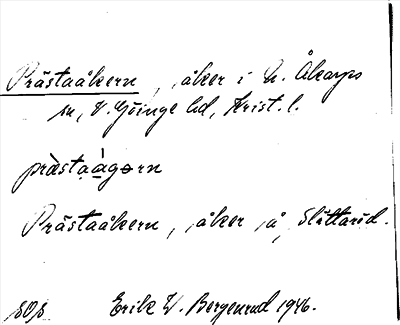 Prästaåkern, åker i N. Åkarps
sn, V. Göinge hd, Krist. l.
prästaågərn
Prästaåkern, åker på Slättaröd.
Erik W. Bergenrud 1946.